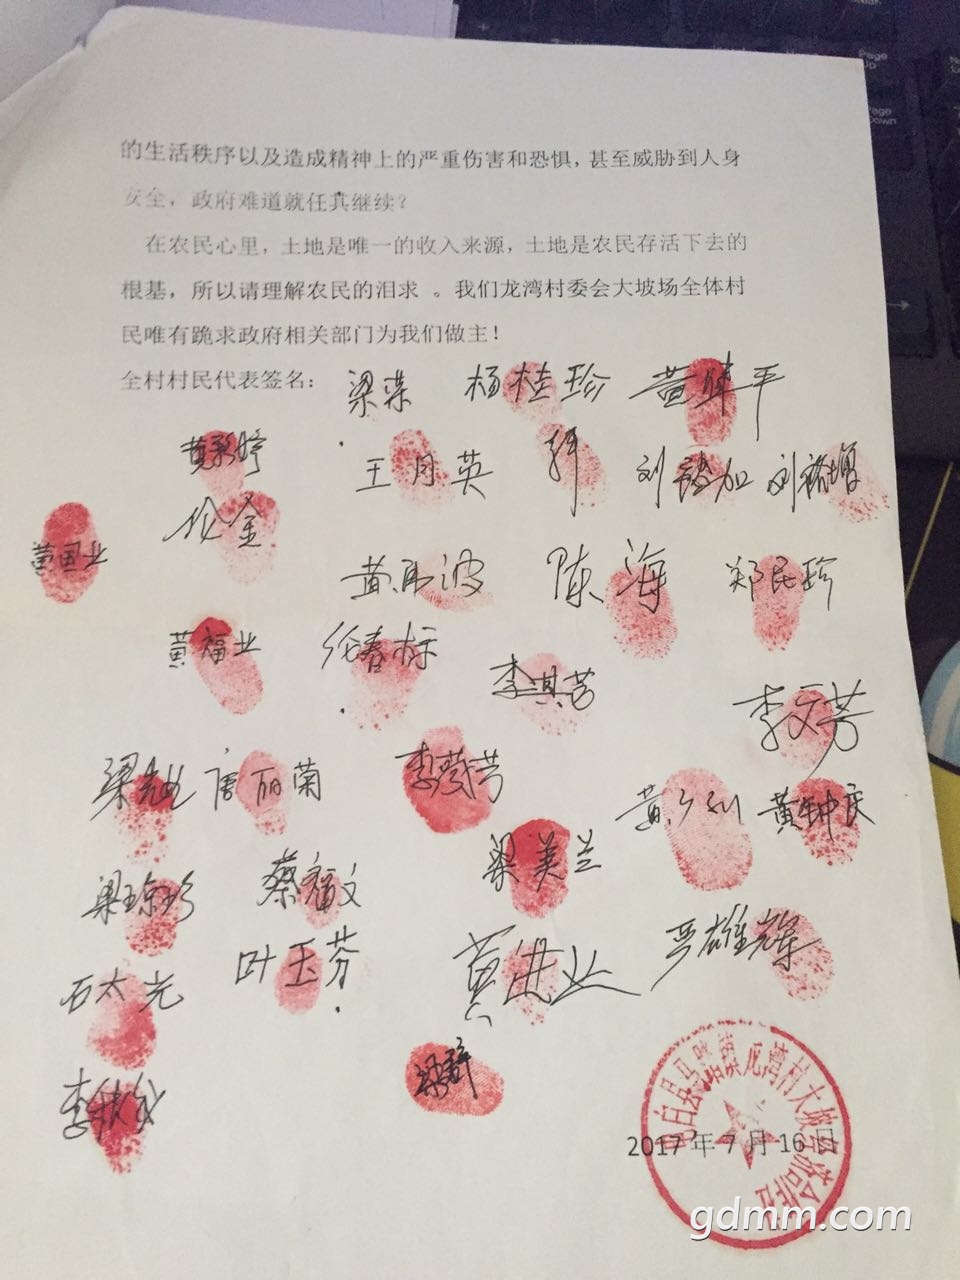 的生活秩序以及造成精神上的严重伤害和恐惧，甚至威胁到人身
安全，政府难道就任其继续？
在农民心里，土地是唯一的收入来源，土地是农民存活下去的
根基，所以请理解农民的泪求 。我们龙湾村委会大坡场全体村
民唯有跪求政府相关部门为我们做主！
全村村民代表签名：
梁荣 杨桂珍
黄彩婷 王月英 刘 加 刘 增
伦金
黄国业 黄 波 陈海 郑民珍
黄福业 伦春标
李淇芳 李文芳
梁 唐丽菊 李 芳
黄 黄钟庆
梁琼珍 蔡福文 梁美兰
石太光 叶玉芬 黄进业 严雄辉
李 梁群
白县马踏镇龙湾村大坡
2017年7月16日
gdmm.com